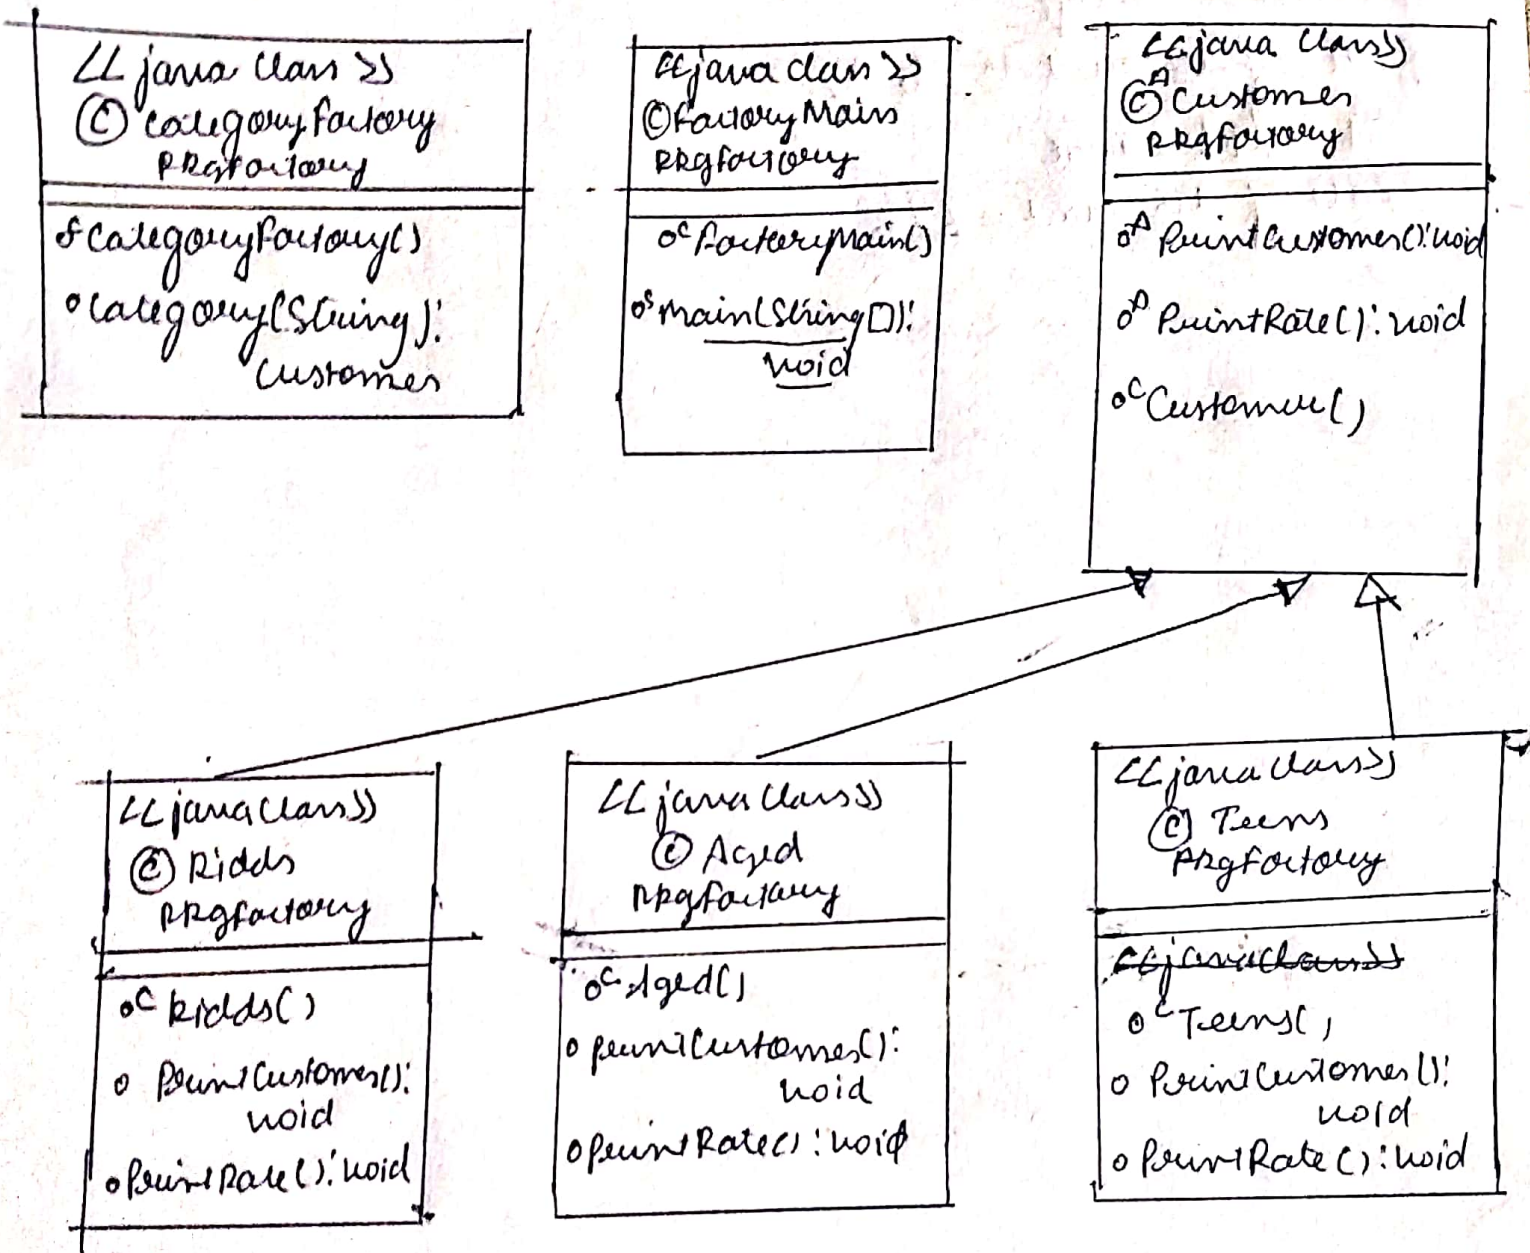 <<java class>>
© CategoryFactory
PRgFactory
CategoryFactory()
Category(String):
Customer
<<java class>>
© FactoryMain
PRgFactory
C FactoryMain()
S main(String[]):
void
<<java class>>
A
© Customer
PRgFactory
A PrintCustomer():void
A PrintRate():void
C Customer()
<<java class>>
© Kidds
PRgFactory
C Kidds()
PrintCustomer():
void
PrintRate():void
<<java class>>
© Aged
PRgFactory
C Aged()
printCustomer():
void
printRate():void
<<java class>>
© Teens
PRgFactory
<<java class>>
C Teens()
PrintCustomer():
void
PrintRate():void